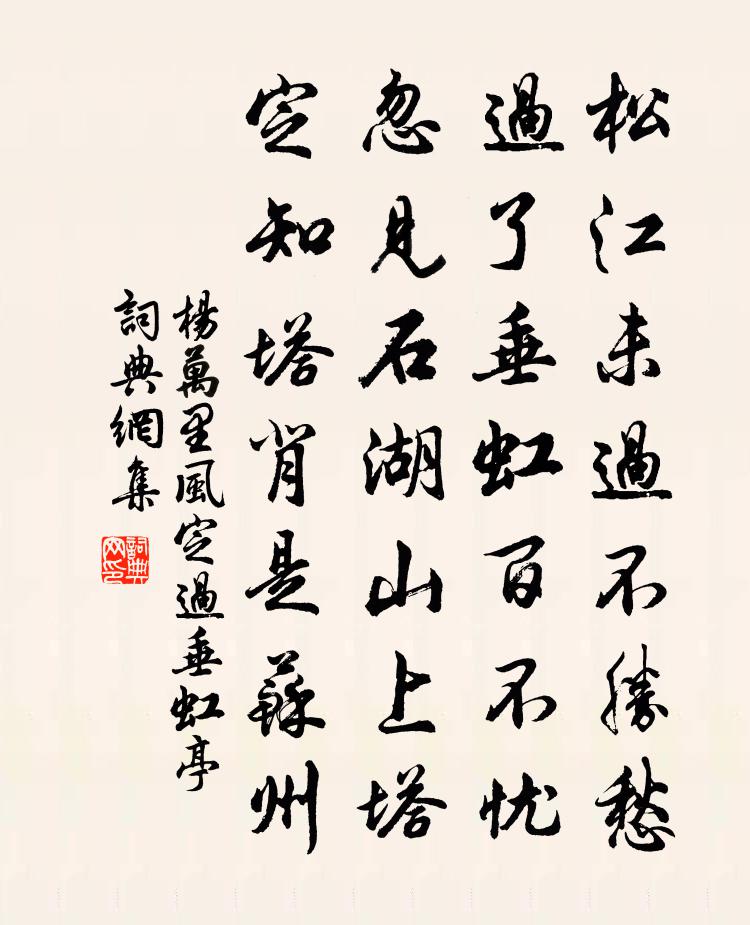 松江未過不勝愁
過了垂虹百不忧
忽見石湖山上塔
定知塔背是蘇州
楊萬里風定過垂虹亭
詞典網集
詞典網印